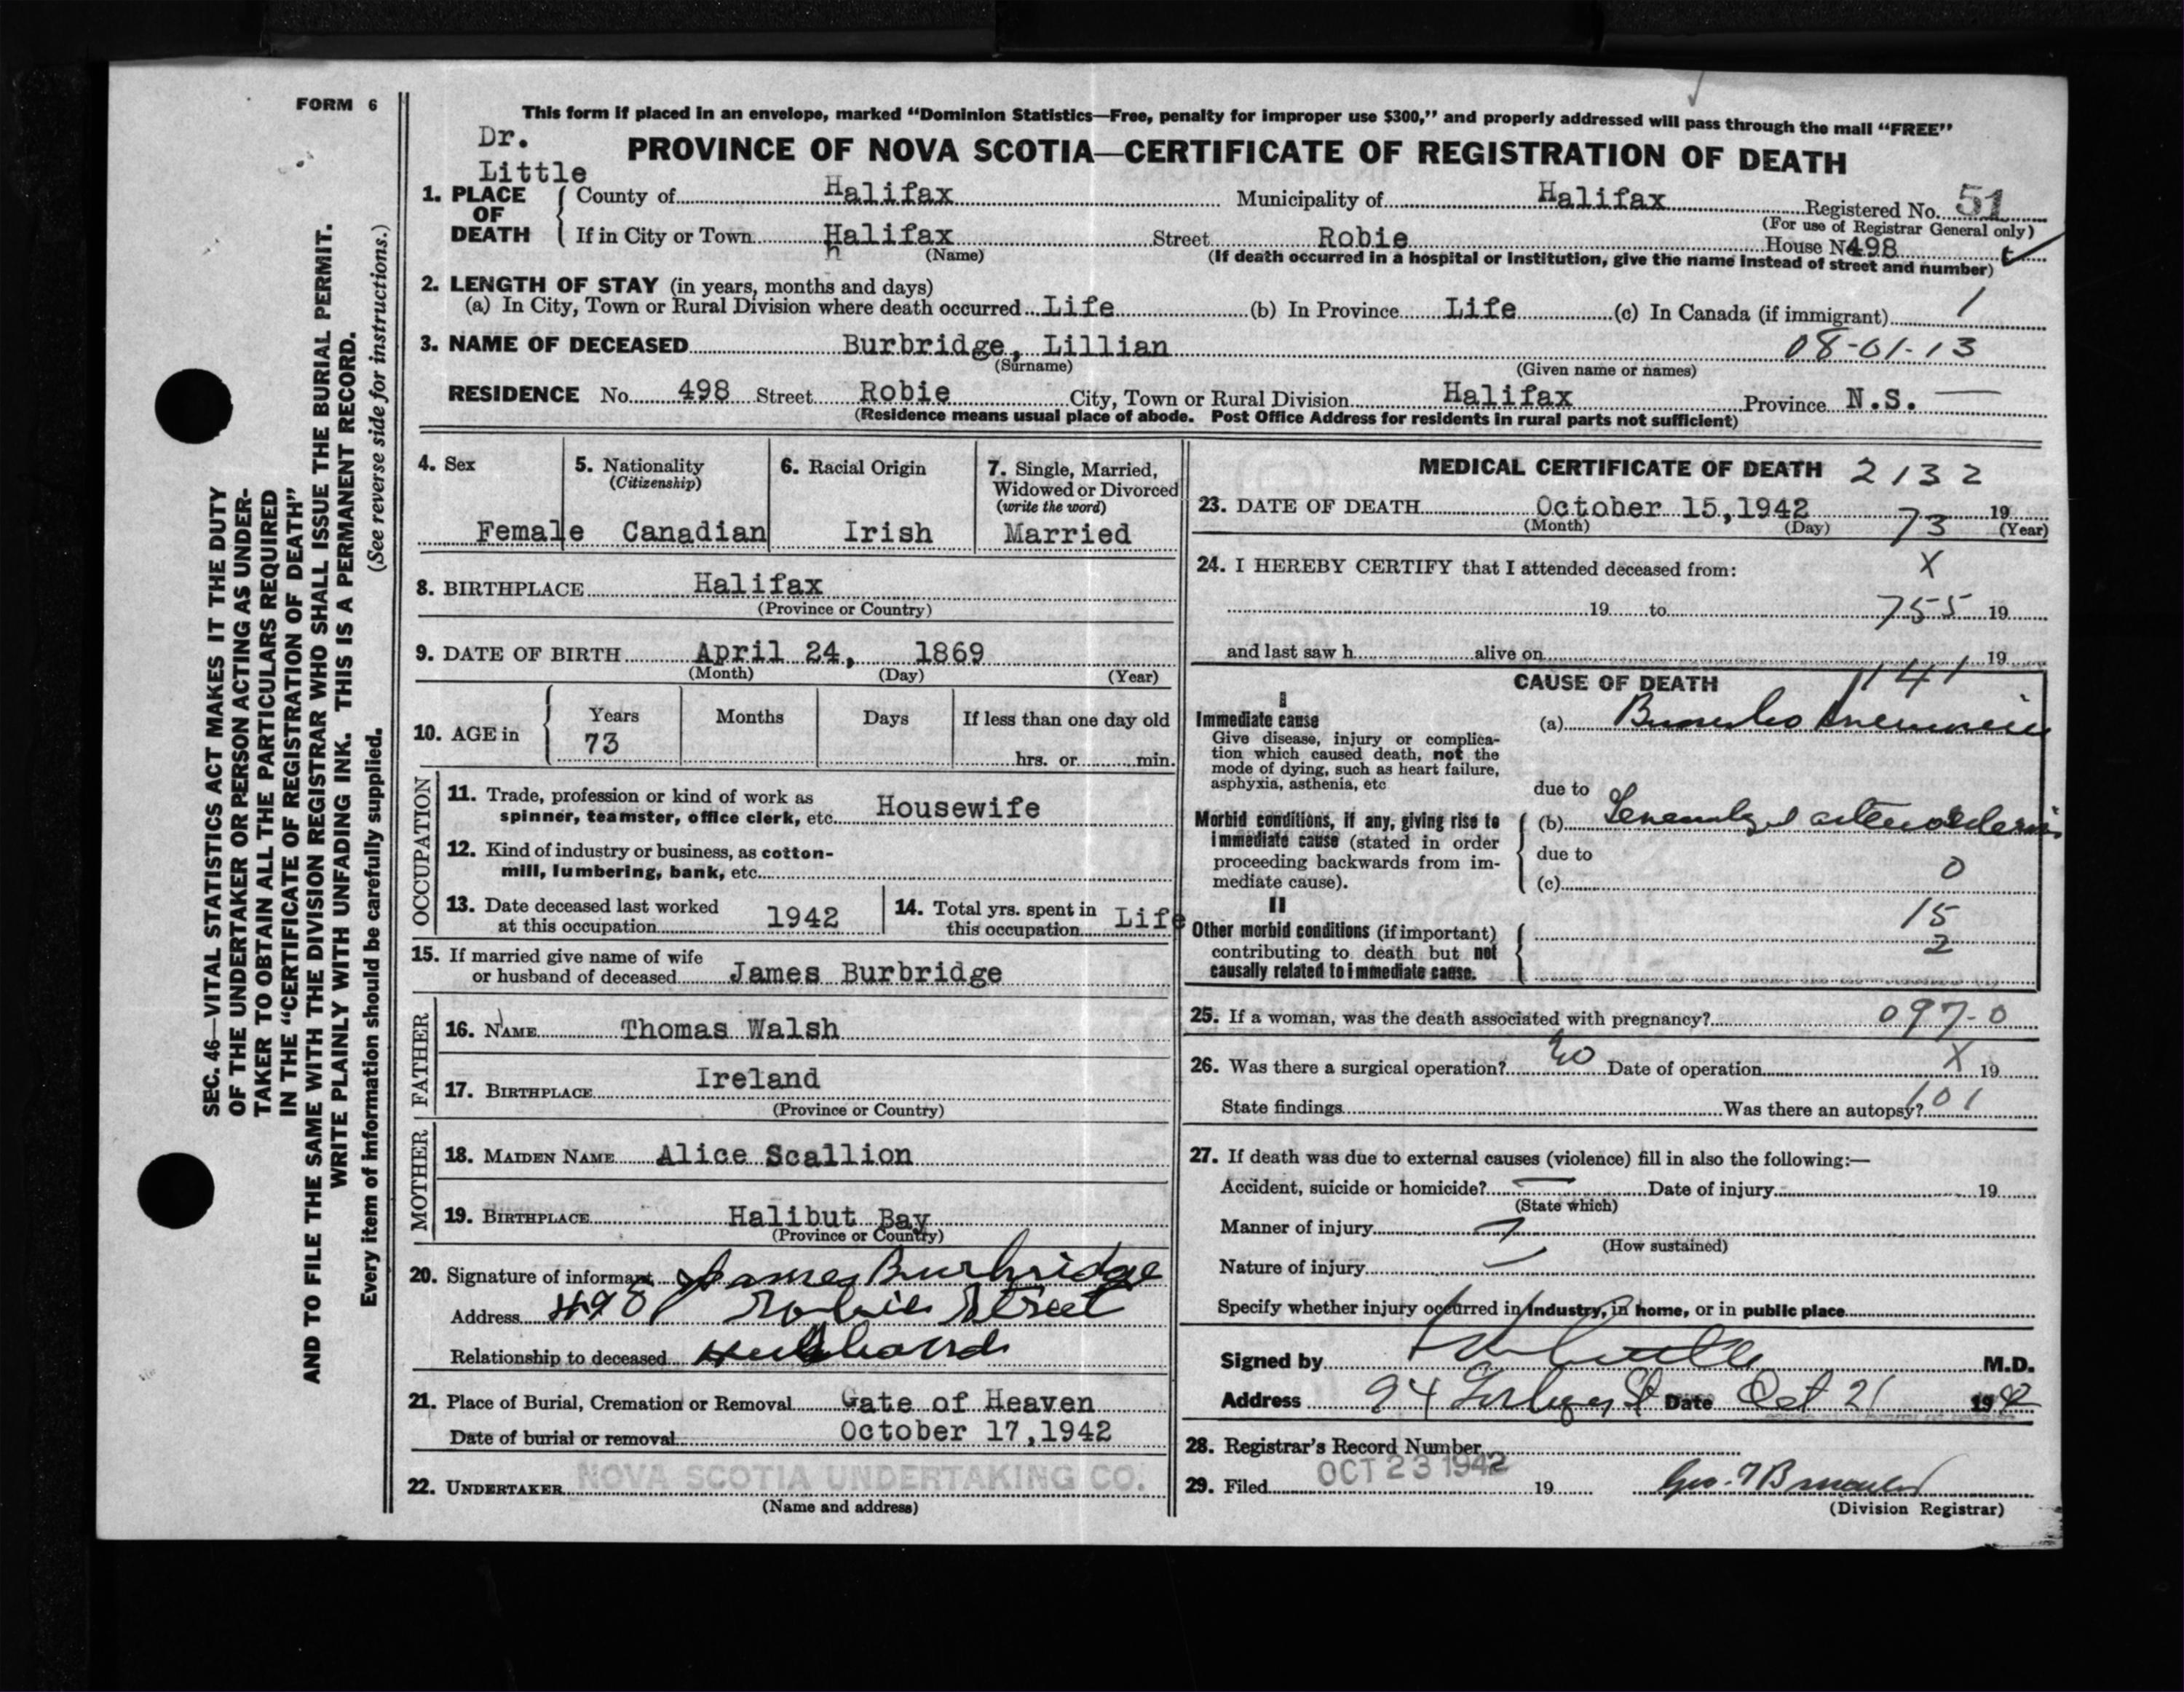 FORM 6
This form if placed in an envelope, marked "Dominion Statistics—Free, penalty for improper use $300," and properly addressed will pass through the mail "FREE"
Dr.
Little
PROVINCE OF NOVA SCOTIA—CERTIFICATE OF REGISTRATION OF DEATH
1. PLACE OF DEATH
County of Halifax Municipality of Halifax Registered No. 51
(For use of Registrar General only)
If in City or Town Halifax Street Robie House No 498
(Name) (If death occurred in a hospital or institution, give the name instead of street and number)
2. LENGTH OF STAY (in years, months and days)
(a) In City, Town or Rural Division where death occurred Life (b) In Province Life (c) In Canada (if immigrant) 1
3. NAME OF DECEASED Burbridge, Lillian 08-01-13
(Surname) (Given name or names)
RESIDENCE No. 498 Street Robie City, Town or Rural Division Halifax Province N.S. —
(Residence means usual place of abode. Post Office Address for residents in rural parts not sufficient)
4. Sex
Female
5. Nationality
(Citizenship)
Canadian
6. Racial Origin
Irish
7. Single, Married,
Widowed or Divorced
(write the word)
Married
8. BIRTHPLACE Halifax
(Province or Country)
9. DATE OF BIRTH April 24, 1869
(Month) (Day) (Year)
10. AGE in
Years Months Days If less than one day old
73 hrs. or min.
OCCUPATION
11. Trade, profession or kind of work as
spinner, teamster, office clerk, etc. Housewife
12. Kind of industry or business, as cotton-
mill, lumbering, bank, etc.
13. Date deceased last worked
at this occupation 1942
14. Total yrs. spent in
this occupation Life
15. If married give name of wife
or husband of deceased James Burbridge
FATHER
16. NAME Thomas Walsh
17. BIRTHPLACE Ireland
(Province or Country)
MOTHER
18. MAIDEN NAME Alice Scallion
19. BIRTHPLACE Halibut Bay
(Province or Country)
20. Signature of informant James Burbridge
Address 498 Robie Street
Relationship to deceased Husband
21. Place of Burial, Cremation or Removal Gate of Heaven
Date of burial or removal October 17, 1942
22. UNDERTAKER NOVA SCOTIA UNDERTAKING CO.
(Name and address)
MEDICAL CERTIFICATE OF DEATH 2132
23. DATE OF DEATH October 15, 1942 19
(Month) (Day) 73 (Year)
24. I HEREBY CERTIFY that I attended deceased from: X
19 to 755 19
and last saw h alive on 19
CAUSE OF DEATH 141
I
Immediate cause
Give disease, injury or complica-
tion which caused death, not the
mode of dying, such as heart failure,
asphyxia, asthenia, etc
(a) Broncho Pneumonia
due to
Morbid conditions, if any, giving rise to
immediate cause (stated in order
proceeding backwards from im-
mediate cause).
(b) arteriosclerosis
due to
(c) 0
II
Other morbid conditions (if important)
contributing to death but not
causally related to immediate cause.
15
2
25. If a woman, was the death associated with pregnancy? 097-0
26. Was there a surgical operation? no Date of operation X 19
State findings Was there an autopsy? 101
27. If death was due to external causes (violence) fill in also the following:—
Accident, suicide or homicide? Date of injury 19
(State which)
Manner of injury
(How sustained)
Nature of injury
Specify whether injury occurred in industry, in home, or in public place
Signed by Little M.D.
Address 94 St Date Oct 21 1942
28. Registrar's Record Number
29. Filed OCT 23 1942 19
(Division Registrar)
SEC. 46—VITAL STATISTICS ACT MAKES IT THE DUTY
OF THE UNDERTAKER OR PERSON ACTING AS UNDER-
TAKER TO OBTAIN ALL THE PARTICULARS REQUIRED
IN THE "CERTIFICATE OF REGISTRATION OF DEATH"
AND TO FILE THE SAME WITH THE DIVISION REGISTRAR WHO SHALL ISSUE THE BURIAL PERMIT.
WRITE PLAINLY WITH UNFADING INK. THIS IS A PERMANENT RECORD.
Every item of information should be carefully supplied. (See reverse side for instructions.)